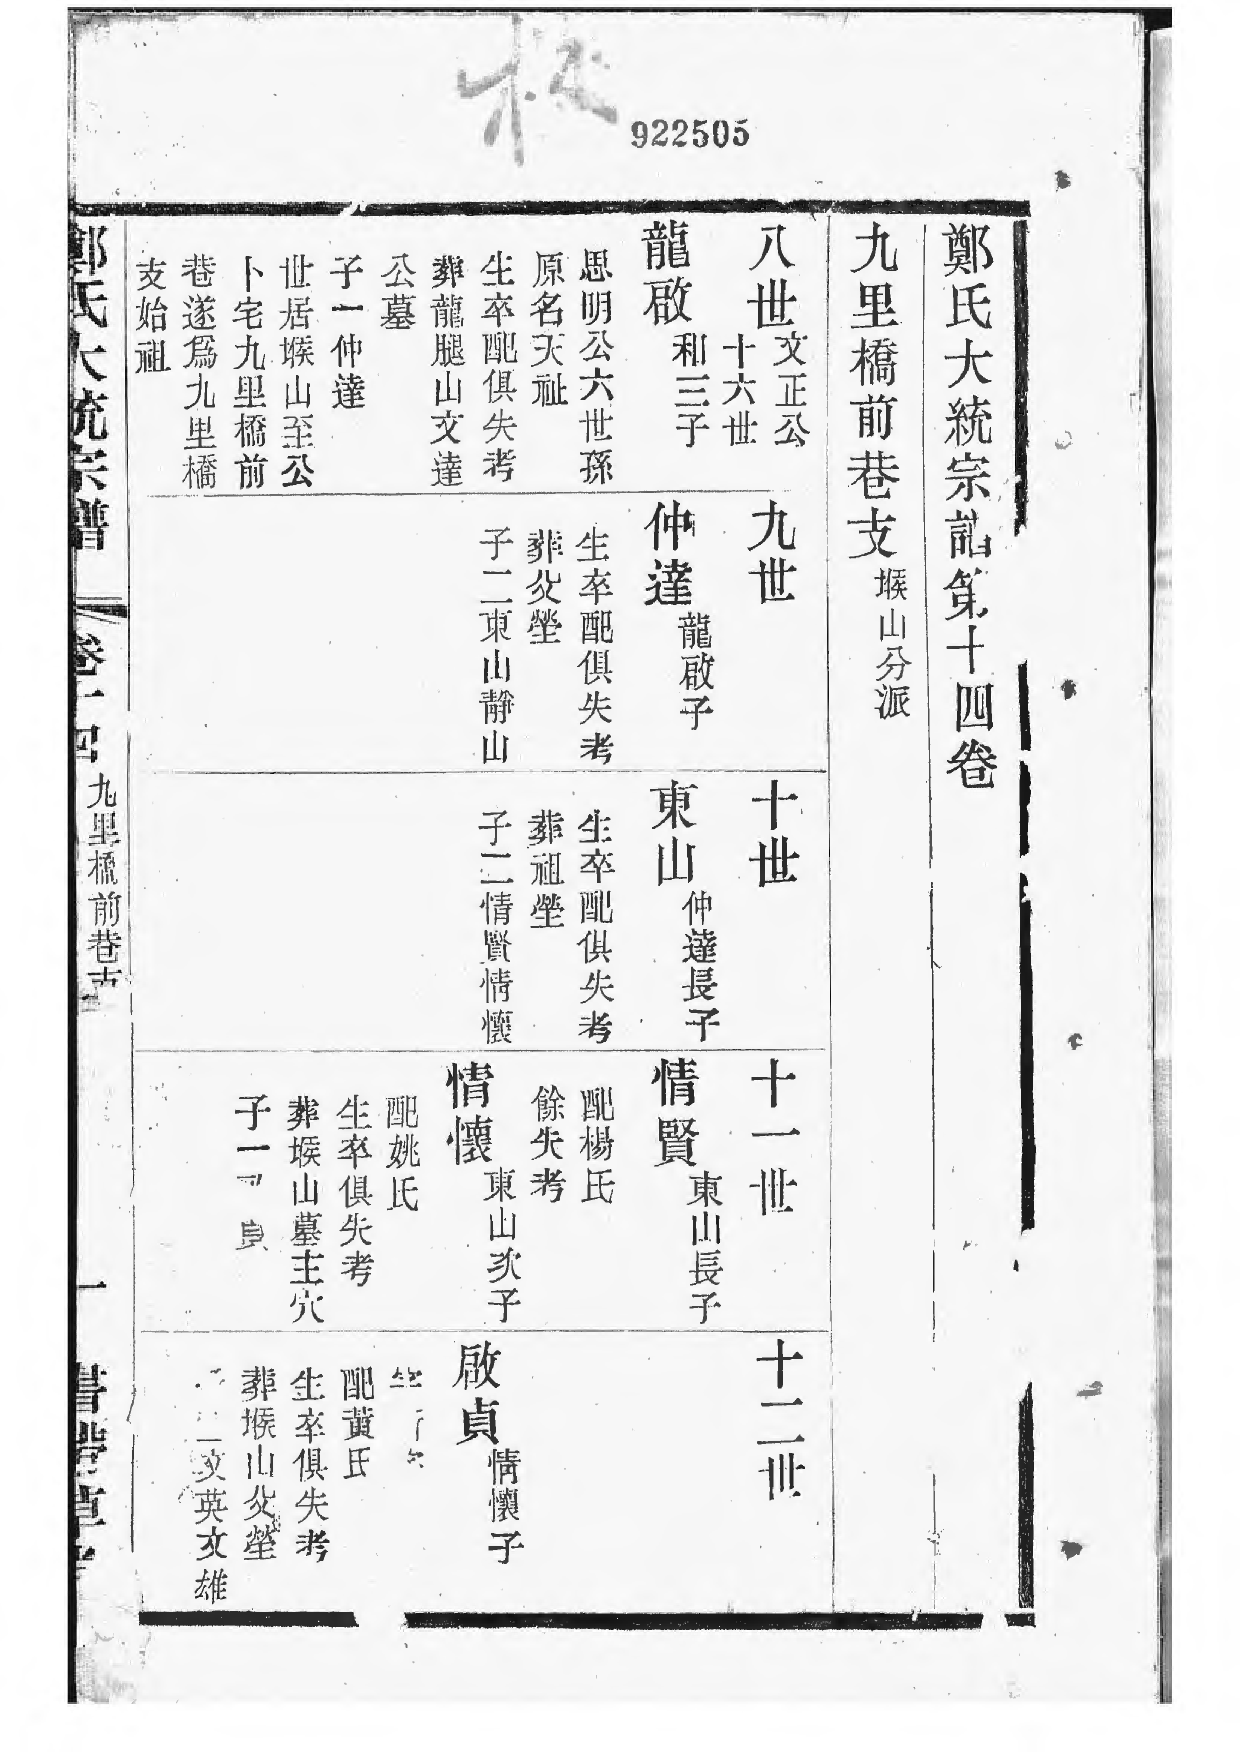 922505
鄭氏大統宗譜第十四卷
九里橋前巷支 堠山分派
八世 文正公
十六世
龍啟 和三子
思明公六世孫
原名天祉
生卒配俱失考
葬龍腿山文達
公墓
子一仲達
世居堠山至公
卜宅九里橋前
巷遂爲九里橋
支始祖
九世
仲達 龍啟子
生卒配俱失考
葬父塋
子二東山靜山
十世
東山 仲達長子
生卒配俱失考
葬祖塋
子二情賢情懷
十一世
情賢 東山長子
配楊氏
餘失考
情懷 東山次子
配姚氏
生卒俱失考
葬堠山墓主穴
子一 貞
十二世
啟貞 情懷子
配黃氏
生卒俱失考
葬堠山父塋
二文英文雄
鄭氏大統宗譜
卷十四
九里橋前巷支
一
書帶草堂